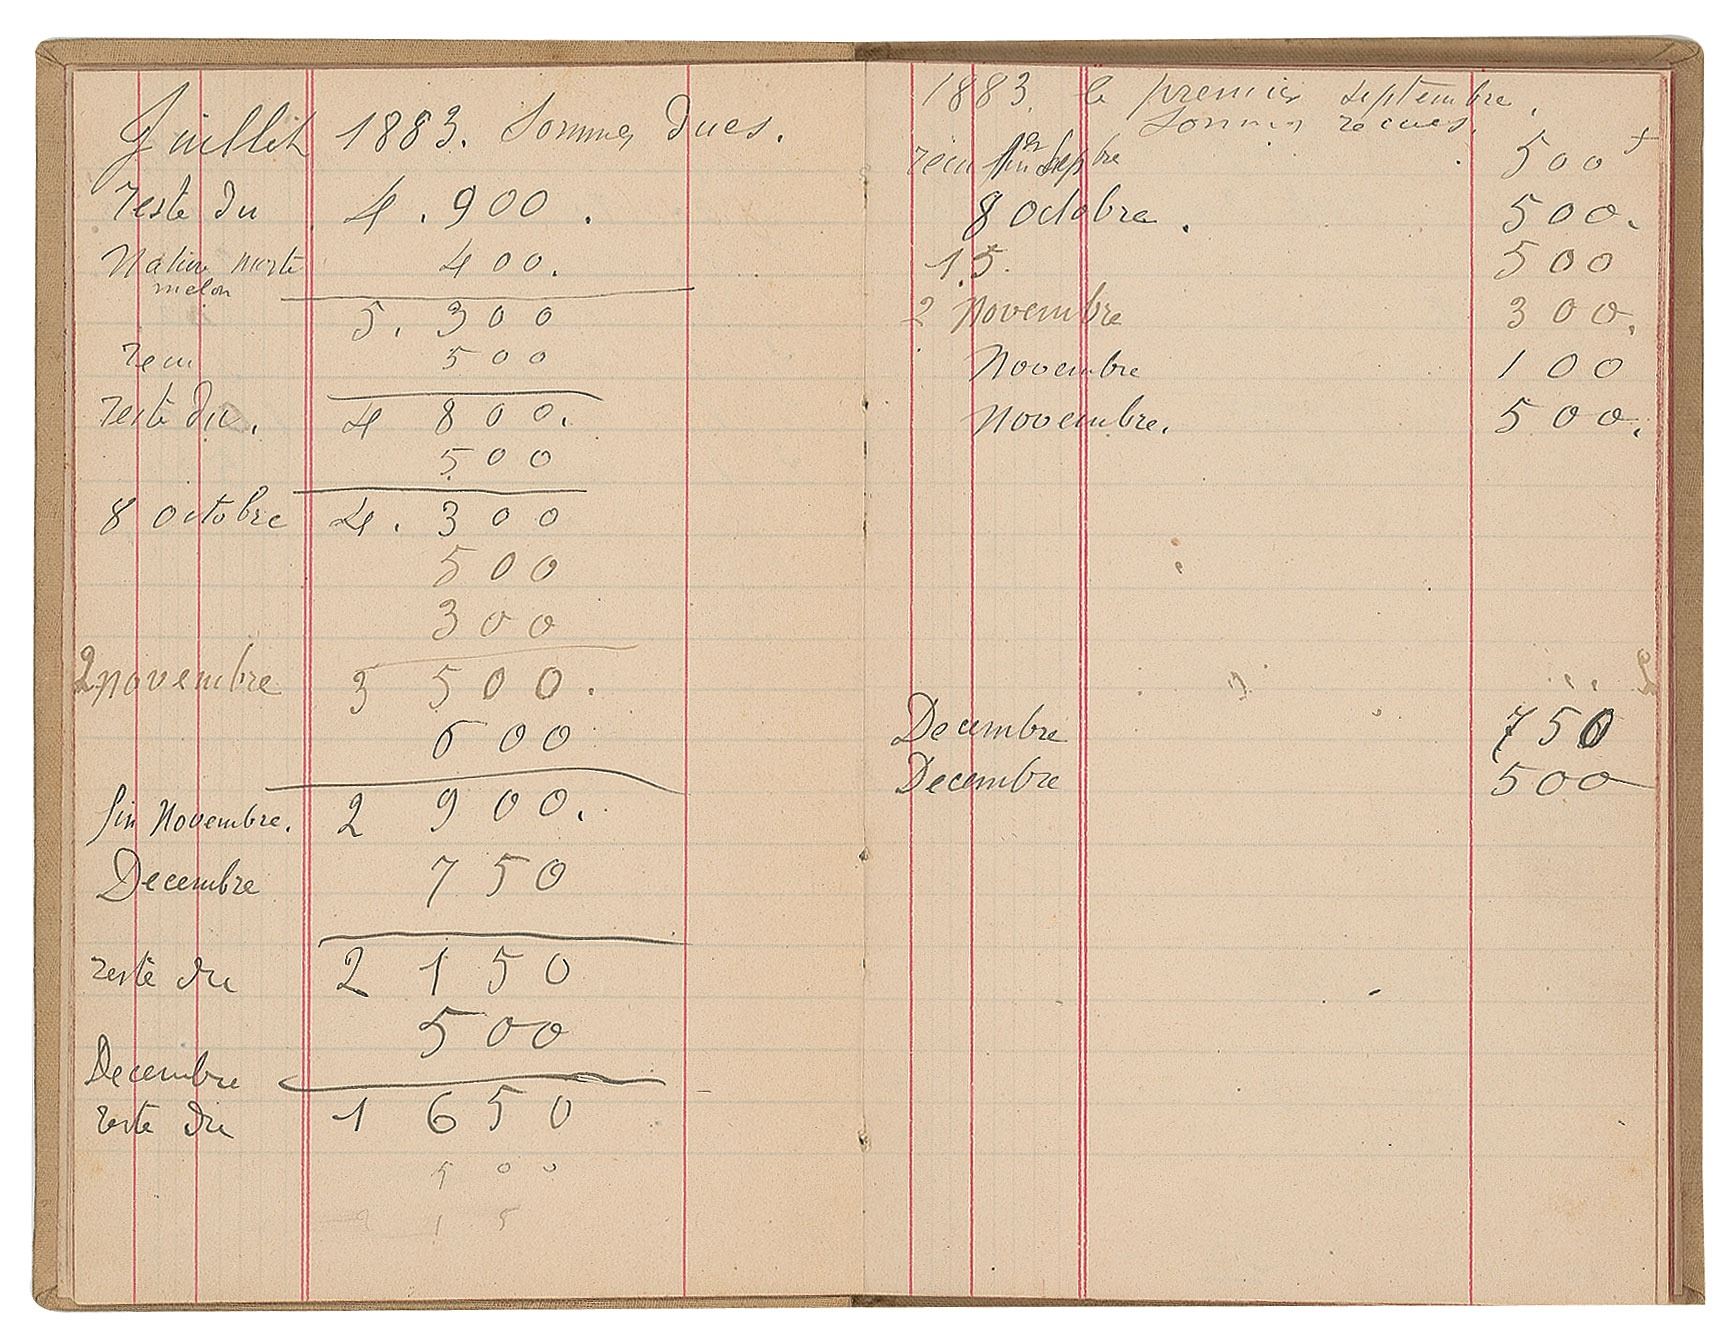 Juillet 1883. Sommes dues.
reste du 4.900.
Nature morte 400.
melon
5.300
recu 500
reste du. 4 800.
500
8 octobre 4.300
500
300
2 novembre 3 500.
600
fin Novembre. 2 900.
Decembre 750
reste du 2 150
500
Decembre
reste du 1 650
500
1 5
1883. le premier septembre.
Sommes recues.
recu Septbre 500
8 octobre. 500.
15. 500
2 Novembre 300.
Novembre 100
Novembre. 500.
Decembre 750
Decembre 500